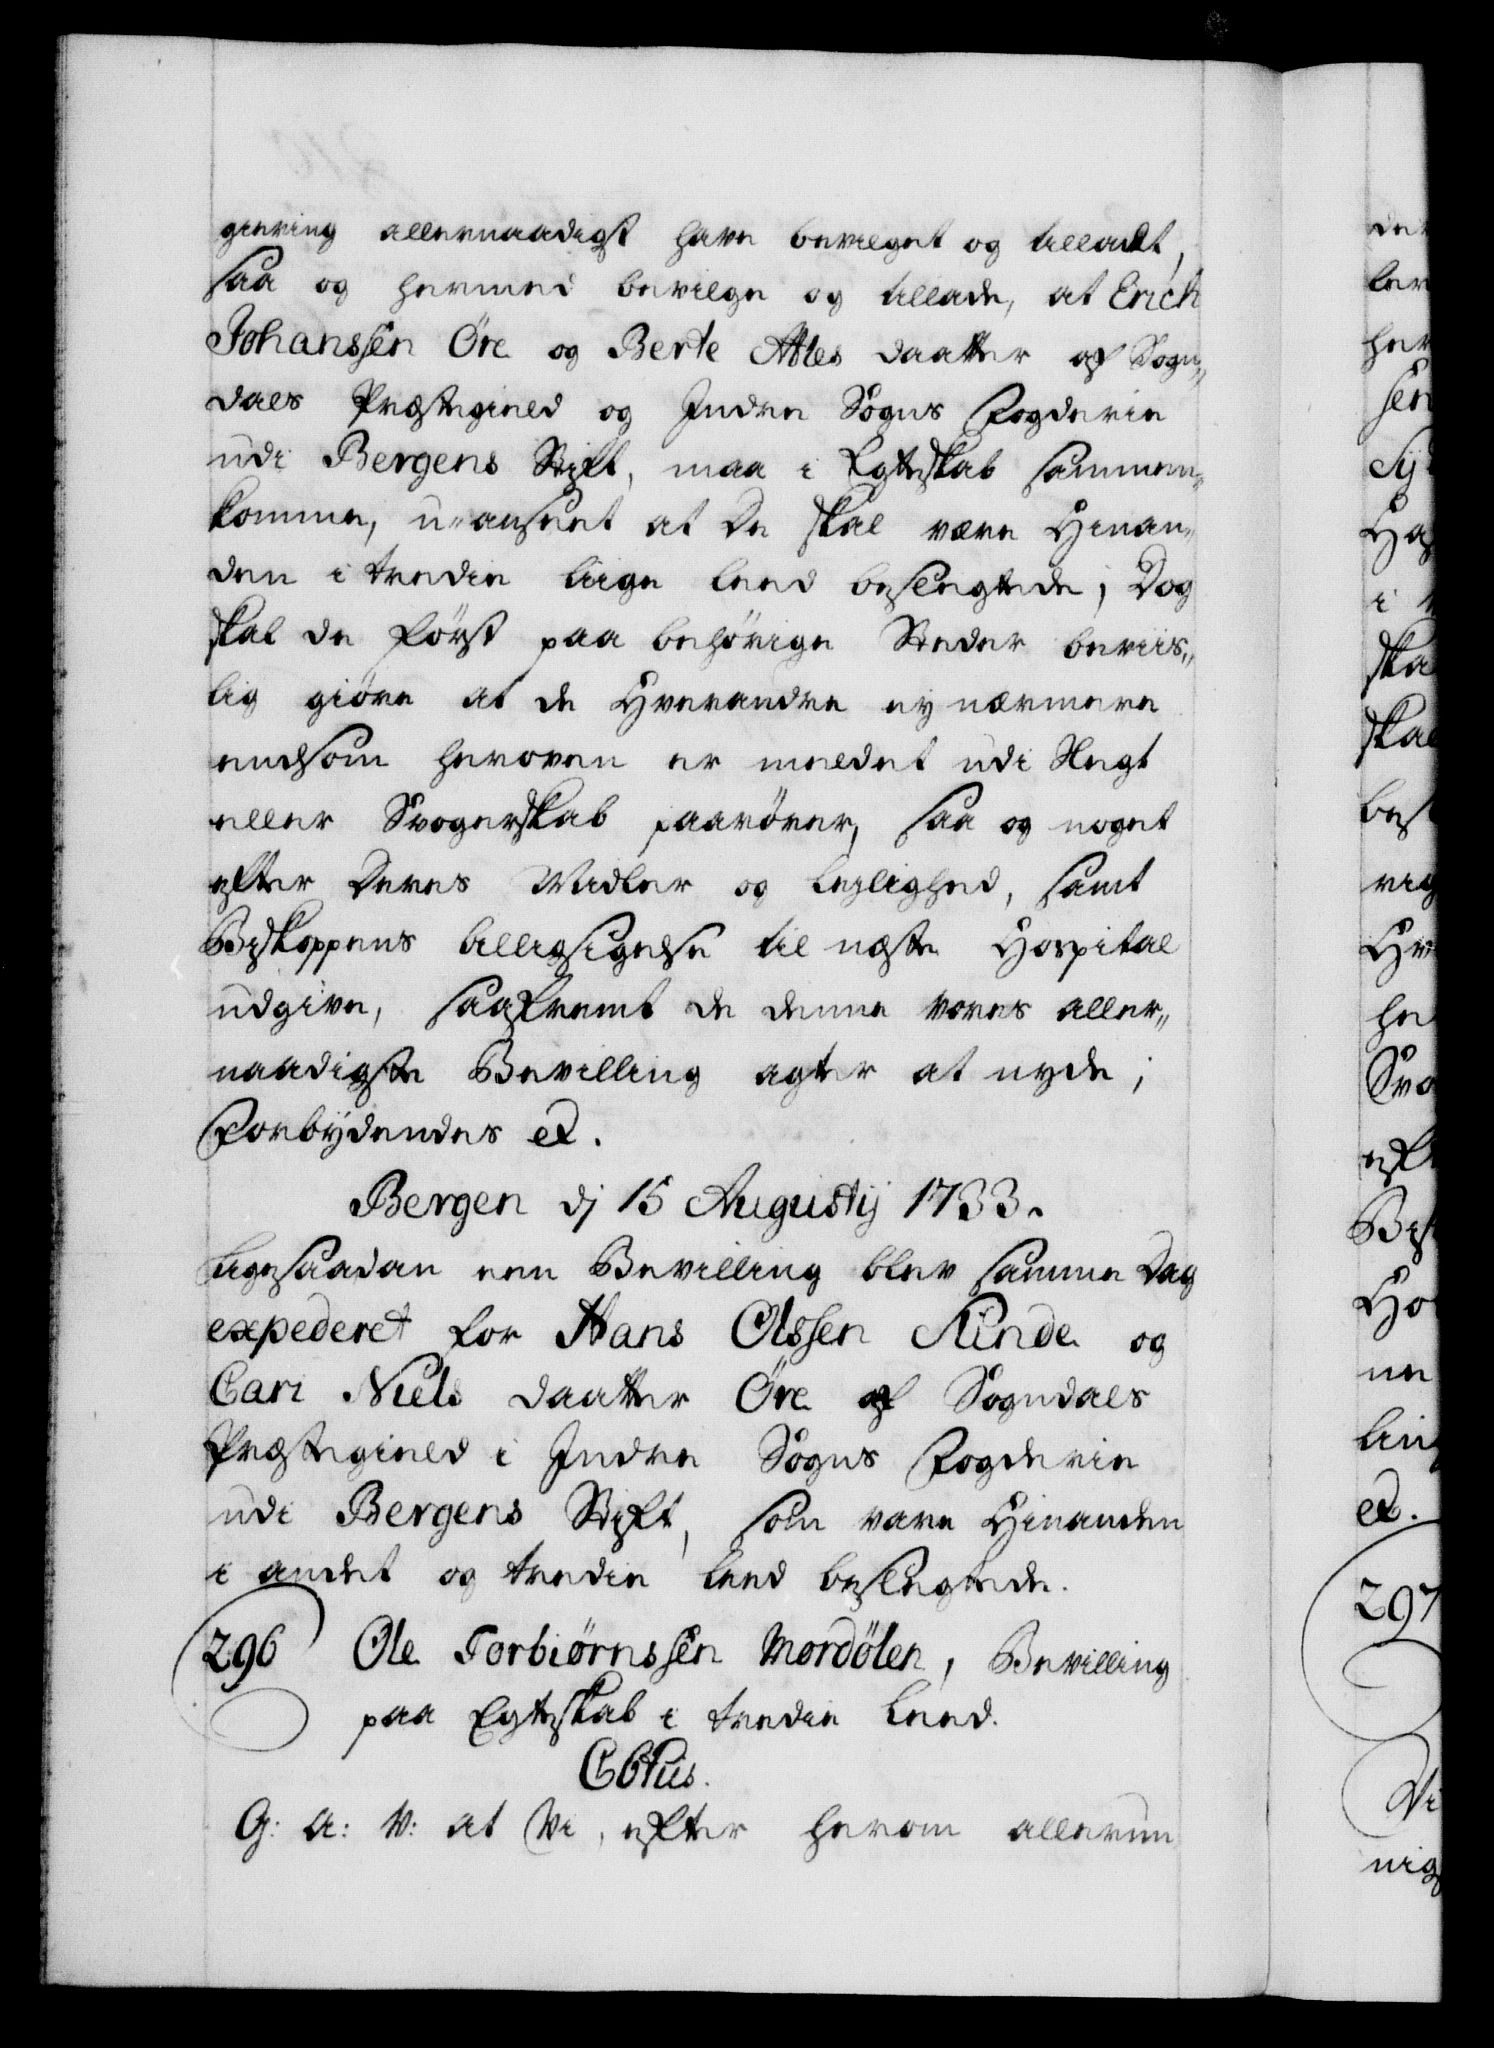 giering allernaadigst have bevilget og tilladt,
saa og hermed bevilge og tillade, at Erich
Johanssen Öre og Berte Atles daatter af Sogn„
dals Præstegield og Indre Sogns Fogderie
udi Bergens Stift, maa i Egteskab sammen„
komme, u-anseet at de skal være Hinan„
den i tredie liige leed beslegtede; Dog
skal de først paa behørige Steder beviis„
lig giøre at de Hverandre ey nærmere
endsom heroven er meldet udi Slegt
eller Svogerskab paarörer, saa og noget
efter deres Midler og leylighed, samt
Biskoppens billigsigelse til næste Hospital
udgive, saafremt de denne vores aller„
naadigste Bevilling agter at nyde;
Forbydendes etc.
Bergen dj 15 Augustij 1733.
Ligesaadan een Bevilling blev samme Dag
expederet for Hans Olssen Kinde og
Cari Niels daatter Öre af Sogndals
Præstegield i Indre Sogns Fogderie
udi Bergens Stift, som vare Hinanden
i andet og tredie leed beslegtede.
296 Ole Torbiørnssen Mordölen, Bevilling
paa Egteskab i tredie Leed.
C6tus.
G: A: V: at Vi, efter herom allerun